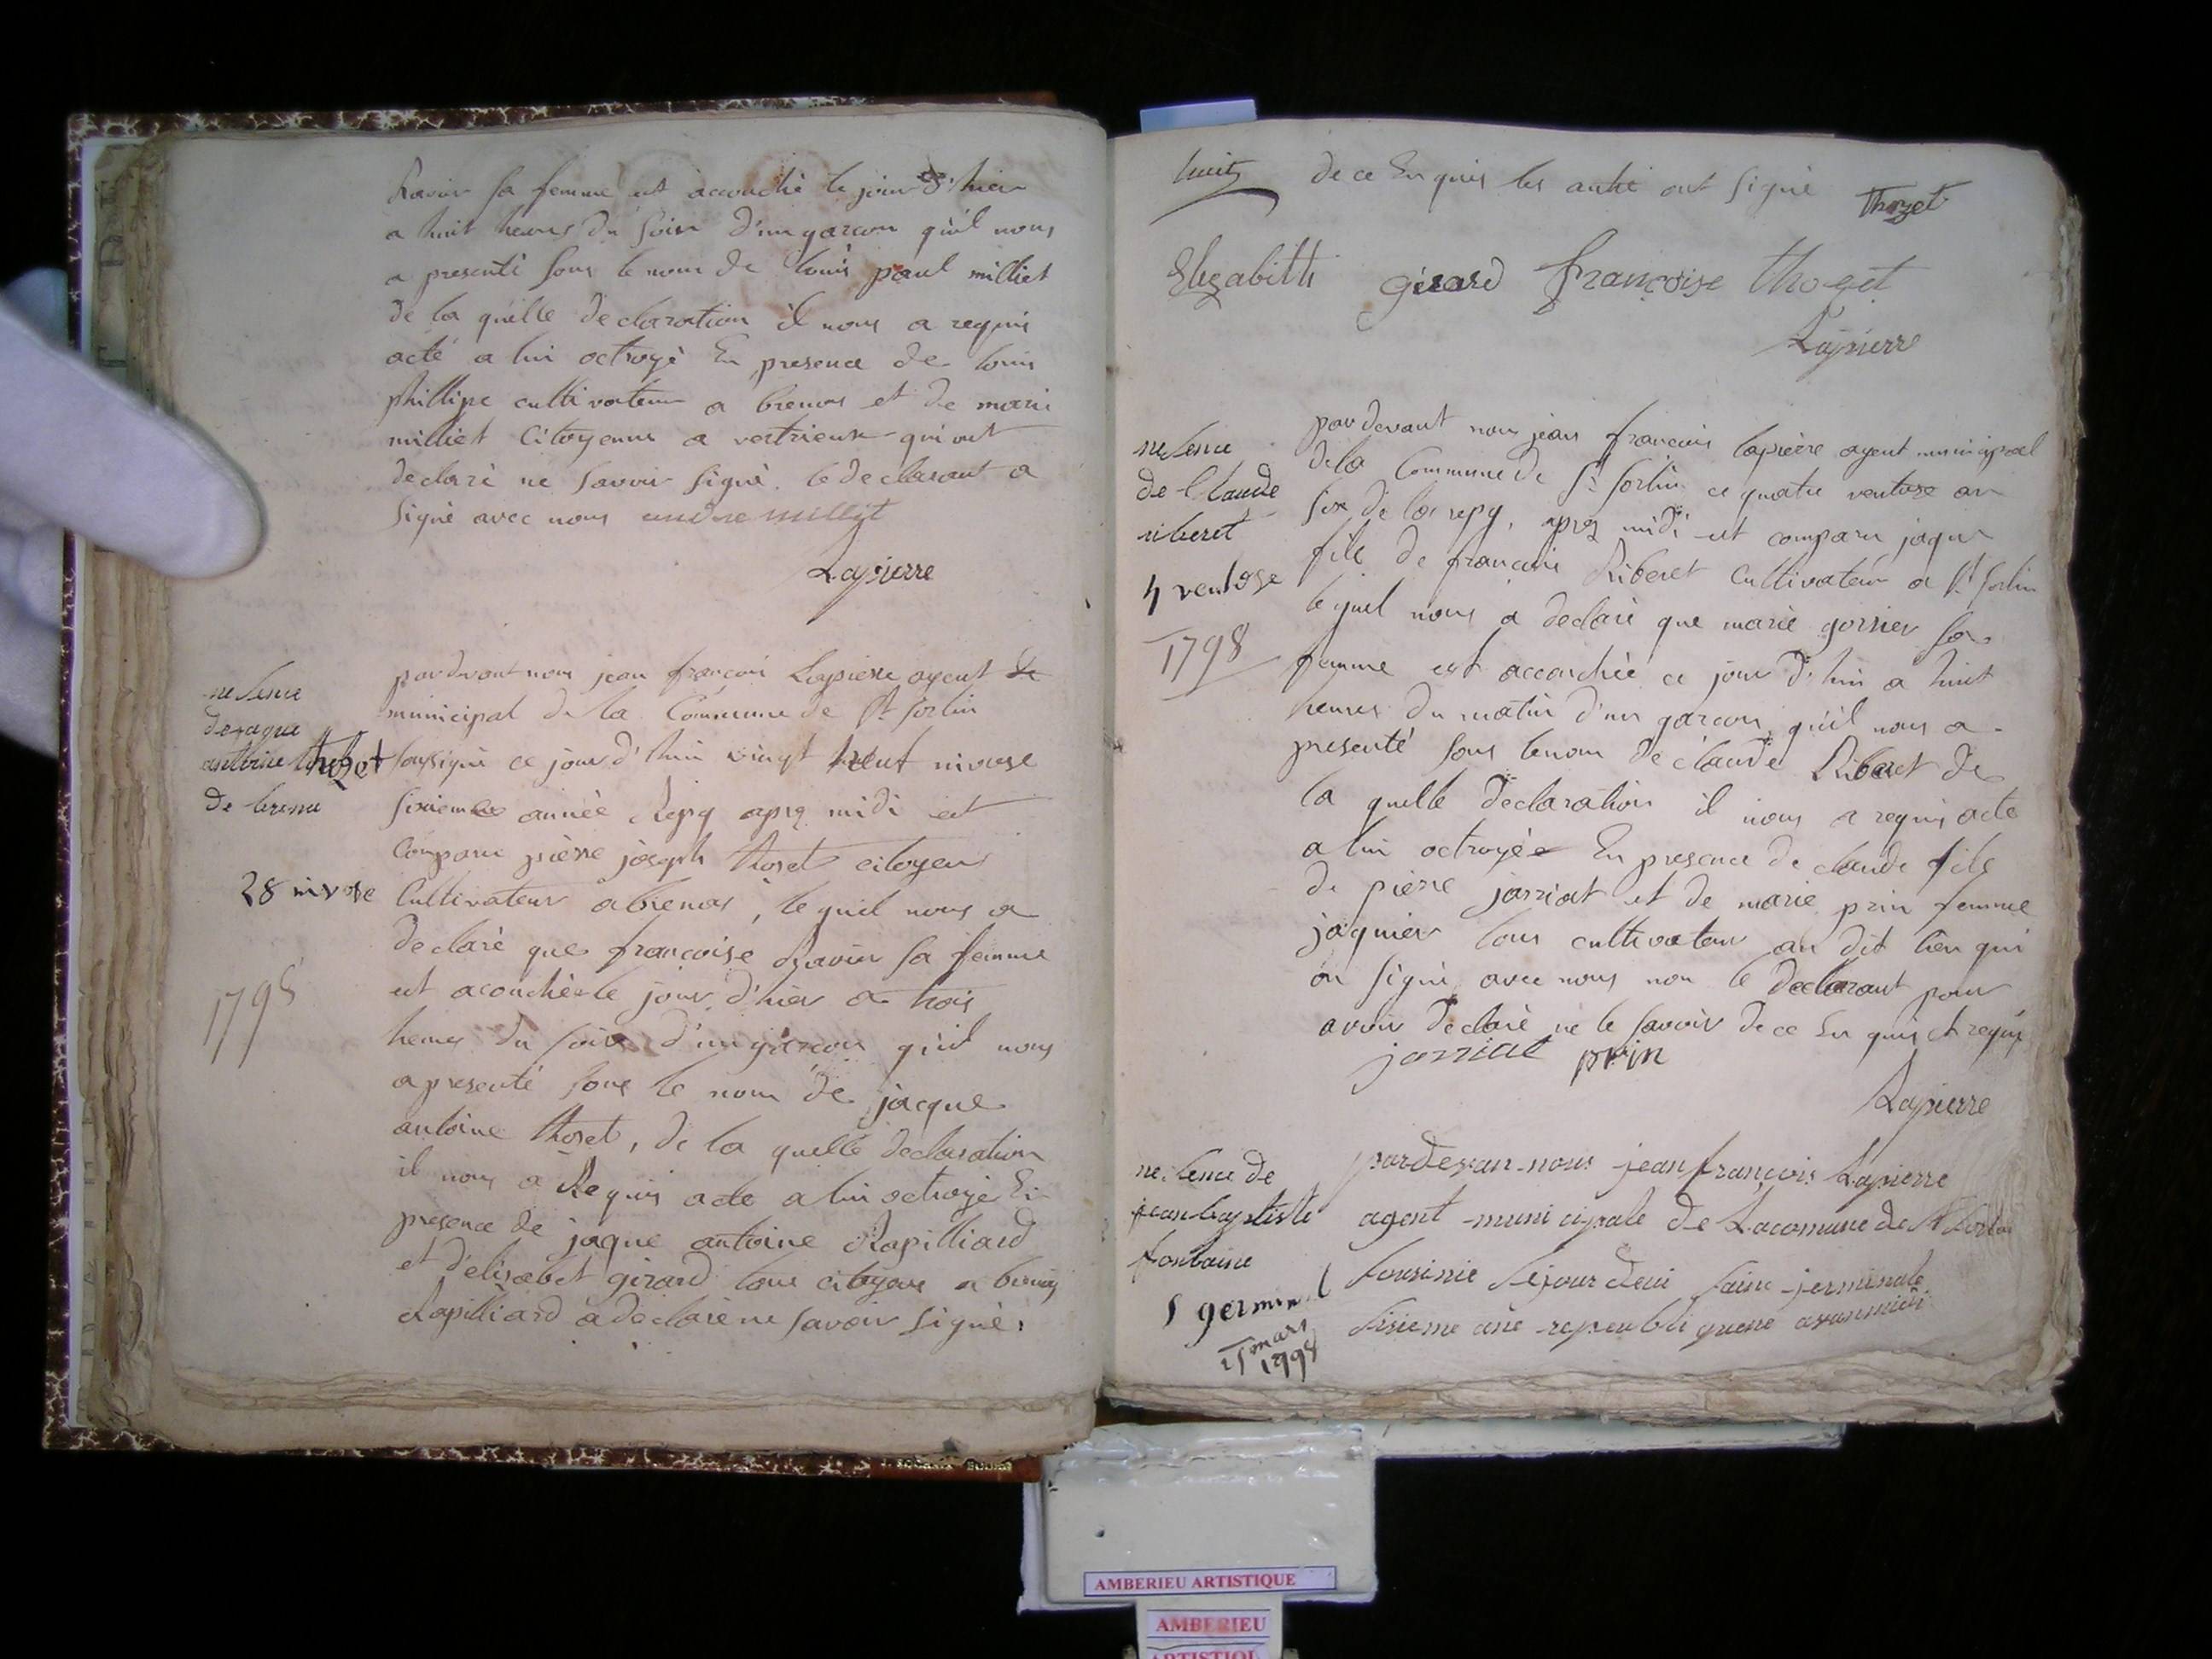 Ravier sa femme est accouché le jour d'hier
a huit heures du soire d'un garcon qu'il nous
a presenté sous le nom de louis paul milliet
de la qu'elle declaration il nous a requis
acté a lui octroyé En presence de louis
phillipe cultivateur a brenas et de marie
milliet Citoyenne a vertrieux qui ont
declaré ne savoir signé. le declarant a
signé avec nous andre millit
Lapierre
nesence
de jaque
antoine thozet
de brena
28 nivose
1798
pardevant nous jean francois Lapierre agent de
municipal de la Commune de St sorlin
sousigné ce jour d'hui vingt neuf nivose
sixiemee année Repq aprq midi est
Comparu pierre joseph thoset citoyen
Cultivateur a brenas, le quel nous a
declaré que francoise Ravier sa femme
est acouchée le jour d'hier a trois
heures du soire d'un garcon qu'il nous
a presenté sous le nom de jacque
antoine thoset, de la quelle declaration
il nous a Requis acte a lui octroyé En
presence de jaque antoine Rapilliard
et d'elisabet girard tous citoyens a brenas
Rapilliard a declaré ne savoir signé.
huit
de ce Enquis les autre ont signé
Thozet
Elizabitti gérard françoise thozet
Lapierre
nesence
de Claude
riberet
4 ventose
1798
pardevant nous jean francois lapierre agent municipal
dela Commune de St sorlin ce quatre ventose an
six de la repq, apres midi est comparu jaque
fils de francois Riberet Cultivateur a St sorlin
lequel nous a declaré que marie gorrier sa
femme est accouchée ce jour d'hui a huit
heures du matin d'un garcon qu'il nous a
presenté sous lenom de claude Riberet de
la quelle declaration il nous a requis acte
a lui octroyée En presence de claude fils
de pierre jarriat et de marie prin femme
jaquier tous cultivateur au dit lieu qui
on signé avec nous non le declarant pour
avoir declaré ne le savoir de ce Enquis et requis
jarriat prin
Lapierre
nesence de
jean baptiste
fontaine
5 germinal
25 mars
1798
pardevan-nous jean françois Lapierre
agent municipale de Lacomune de St sorlin
sousinié sejour deui sainc jerminale
sisieme ané repeubliquene avanmidi
AMBERIEU ARTISTIQUE
AMBERIEU
ARTISTIQUE